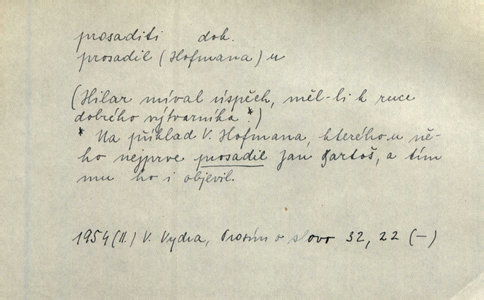 prosaditi dok.
prosadil (Hofmana) u
(Hilar míval úspěch, měl-li k ruce
dobrého výtvarníka*.)
* Na příklad V. Hofmana, kterého u ně-
ho nejprve prosadil Jan Bartoš, a tím
mu ho i objevil.
1954 (II.) V. Vydra, Prosím o slovo 32, 22 (-)